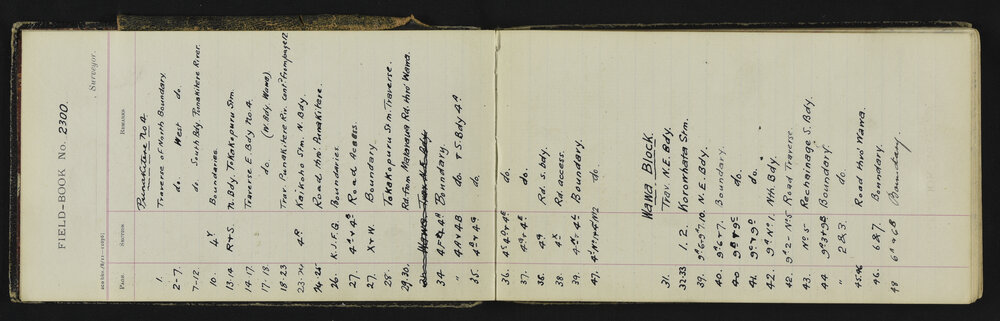 FIELD-BOOK No. 2300.
, Surveyor.
PAGE SECTION REMARKS
Punakitere No 4
1. Traverse of North Boundary
2-7. do. West do.
7-12. do. South Bdy. Punakitere River.
10. 4Y Boundaries
13-14 R+S. N. Bdy. Tokakopuru Stm.
14-17. Traverse E. Bdy No 4.
17-18. do (N. Bdy. Wawa)
18-23 Trav. Punakitere Riv. cont.d from page 12
23-24 4A Kaikoho Stm. N. Bdy.
24-25 Road thro' Punakitere.
26. K.J.F.G. Boundaries.
27. Road Access.
27. X+W. Boundary
28. Takapuru Stm. Traverse.
29-30. Rd. from Mataraua Rd. thro' Wawa.
34 Boundary
" 4A+4B do. + S. Bdy 4A
35. do.
36. do.
37. do.
38. Rd. S. bdy.
38. Rd access.
39. Boundary.
47. do.
Wawa Block.
31. Trav. N.E. Bdy.
32-33 1. 2. Korowhata Stm.
39. N.E. Bdy.
40. Boundary.
40 do.
41. do.
42. Nth Bdy.
42. Road Traverse.
43. No 5 Rechainage S. Bdy.
44 Boundary
" 2 & 3. do.
45-46 Road thro' Wawa.
46. 6 & 7. Boundary.
48 Boundary